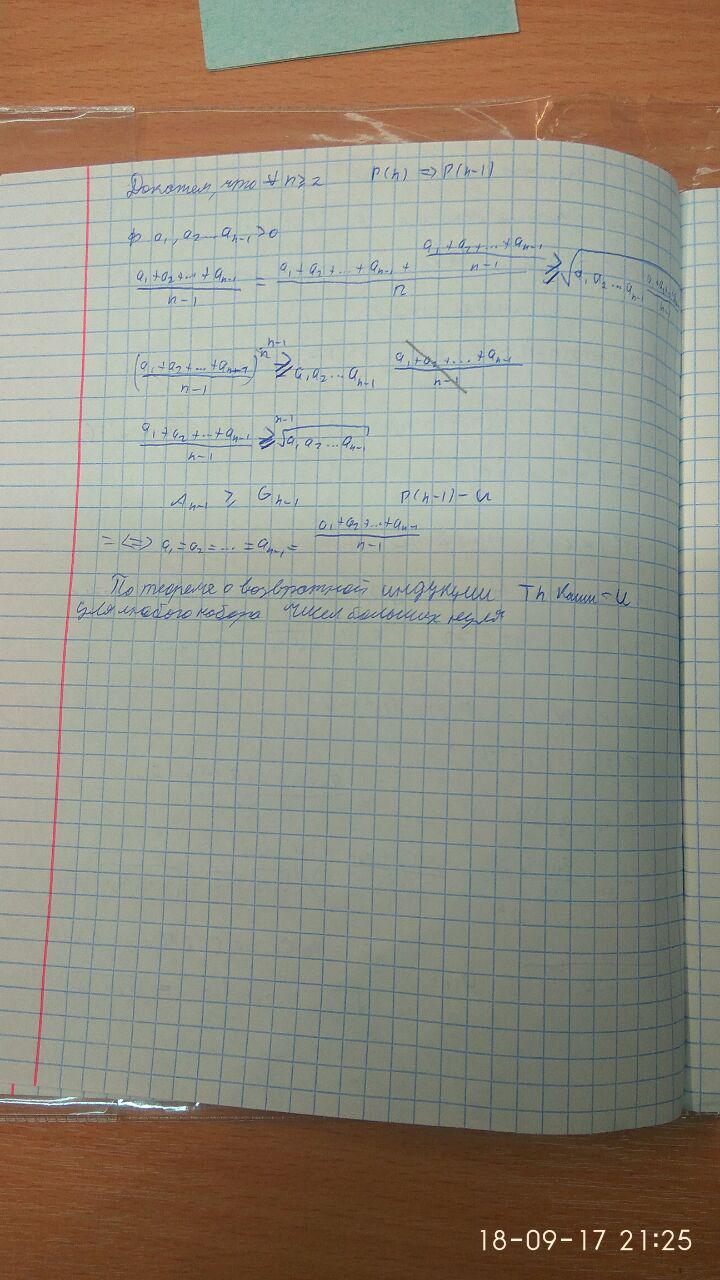 Докажем, что ∀ n ≥ 2 P(n) => P(n-1)
a₁, a₂ ... aₙ₋₁ > 0
(a₁ + a₂ + ... + aₙ₋₁)/(n-1) = (a₁ + a₂ + ... + aₙ₋₁ + (a₁ + a₂ + ... + aₙ₋₁)/(n-1))/n ≥ √(a₁ a₂ ... aₙ₋₁ (a₁ + a₂ + ... + aₙ₋₁)/(n-1))
((a₁ + a₂ + ... + aₙ₋₁)/(n-1))ⁿ⁻¹ ≥ a₁ a₂ ... aₙ₋₁ (a₁ + a₂ + ... + aₙ₋₁)/(n-1)
(a₁ + a₂ + ... + aₙ₋₁)/(n-1) ≥ ⁿ⁻¹√(a₁ a₂ ... aₙ₋₁)
Aₙ₋₁ ≥ Gₙ₋₁ P(n-1) - и
= <=> a₁ = a₂ = ... = aₙ₋₁ = (a₁ + a₂ + ... + aₙ₋₁)/(n-1)
По теореме о возвратной индукции Th Коши - и
для любого набора чисел больших нуля
18-09-17 21:25